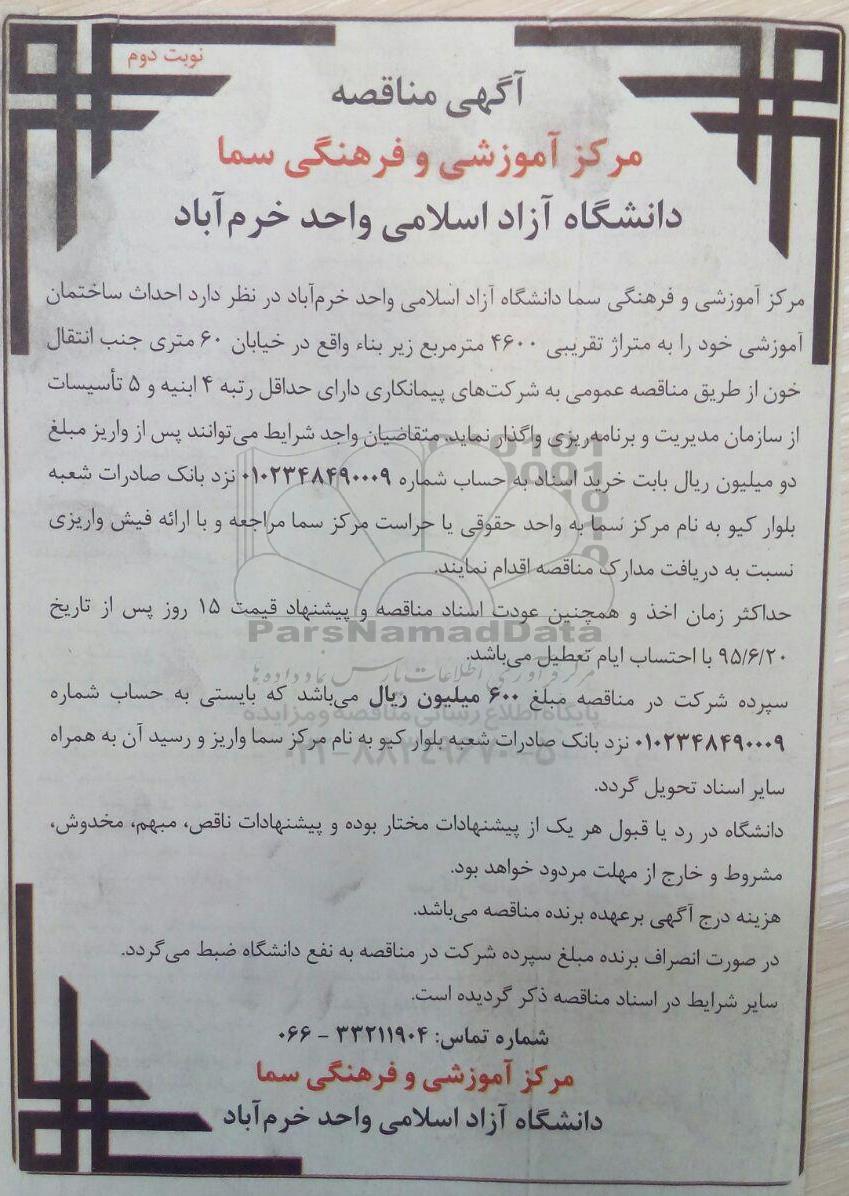 نوبت دوم
آگهی مناقصه
مرکز آموزشی و فرهنگی سما
دانشگاه آزاد اسلامی واحد خرم‌آباد
مرکز آموزشی و فرهنگی سما دانشگاه آزاد اسلامی واحد خرم‌آباد در نظر دارد احداث ساختمان
آموزشی خود را به متراژ تقریبی ۴۶۰۰ مترمربع زیر بناء واقع در خیابان ۶۰ متری جنب انتقال
خون از طریق مناقصه عمومی به شرکت‌های پیمانکاری دارای حداقل رتبه ۴ ابنیه و ۵ تأسیسات
از سازمان مدیریت و برنامه‌ریزی واگذار نماید. متقاضیان واجد شرایط می‌توانند پس از واریز مبلغ
دو میلیون ریال بابت خرید اسناد به حساب شماره ۰۱۰۲۳۴۸۴۹۰۰۰۹ نزد بانک صادرات شعبه
بلوار کیو به نام مرکز سما به واحد حقوقی یا حراست مرکز سما مراجعه و با ارائه فیش واریزی
نسبت به دریافت مدارک مناقصه اقدام نمایند.
حداکثر زمان اخذ و همچنین عودت اسناد مناقصه و پیشنهاد قیمت ۱۵ روز پس از تاریخ
ParsNamadData
۹۵/۶/۲۰ با احتساب ایام تعطیل می‌باشد.
مرکز فرآوری اطلاعات پارس نماد داده‌ها
سپرده شرکت در مناقصه مبلغ ۶۰۰ میلیون ریال می‌باشد که بایستی به حساب شماره
پایگاه اطلاع رسانی مناقصه و مزایده
۰۱۰۲۳۴۸۴۹۰۰۰۹ نزد بانک صادرات شعبه بلوار کیو به نام مرکز سما واریز و رسید آن به همراه
۰۲۱-۸۸۳۴۹۶۷۰-۵
سایر اسناد تحویل گردد.
دانشگاه در رد یا قبول هر یک از پیشنهادات مختار بوده و پیشنهادات ناقص، مبهم، مخدوش،
مشروط و خارج از مهلت مردود خواهد بود.
هزینه درج آگهی برعهده برنده مناقصه می‌باشد.
در صورت انصراف برنده مبلغ سپرده شرکت در مناقصه به نفع دانشگاه ضبط می‌گردد.
سایر شرایط در اسناد مناقصه ذکر گردیده است.
شماره تماس: ۳۳۲۱۱۹۰۴ - ۰۶۶
مرکز آموزشی و فرهنگی سما
دانشگاه آزاد اسلامی واحد خرم‌آباد